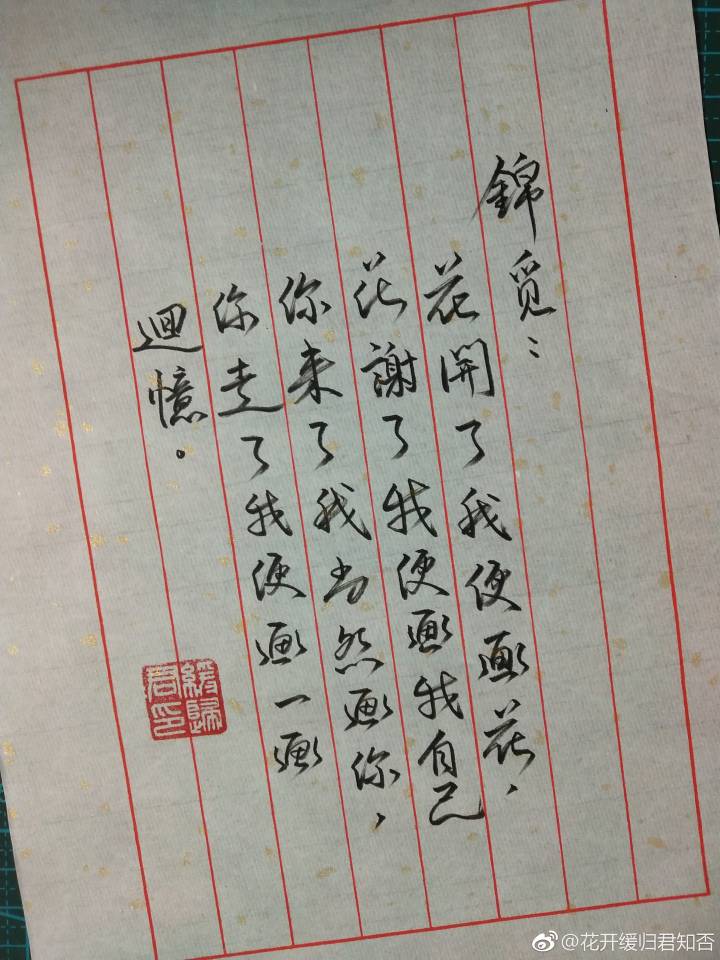 錦覓：
花開了我便画花，
花謝了我便画我自己
你来了我当然画你，
你走了我便画一画
迴憶。
緩歸君印
@花开缓归君知否